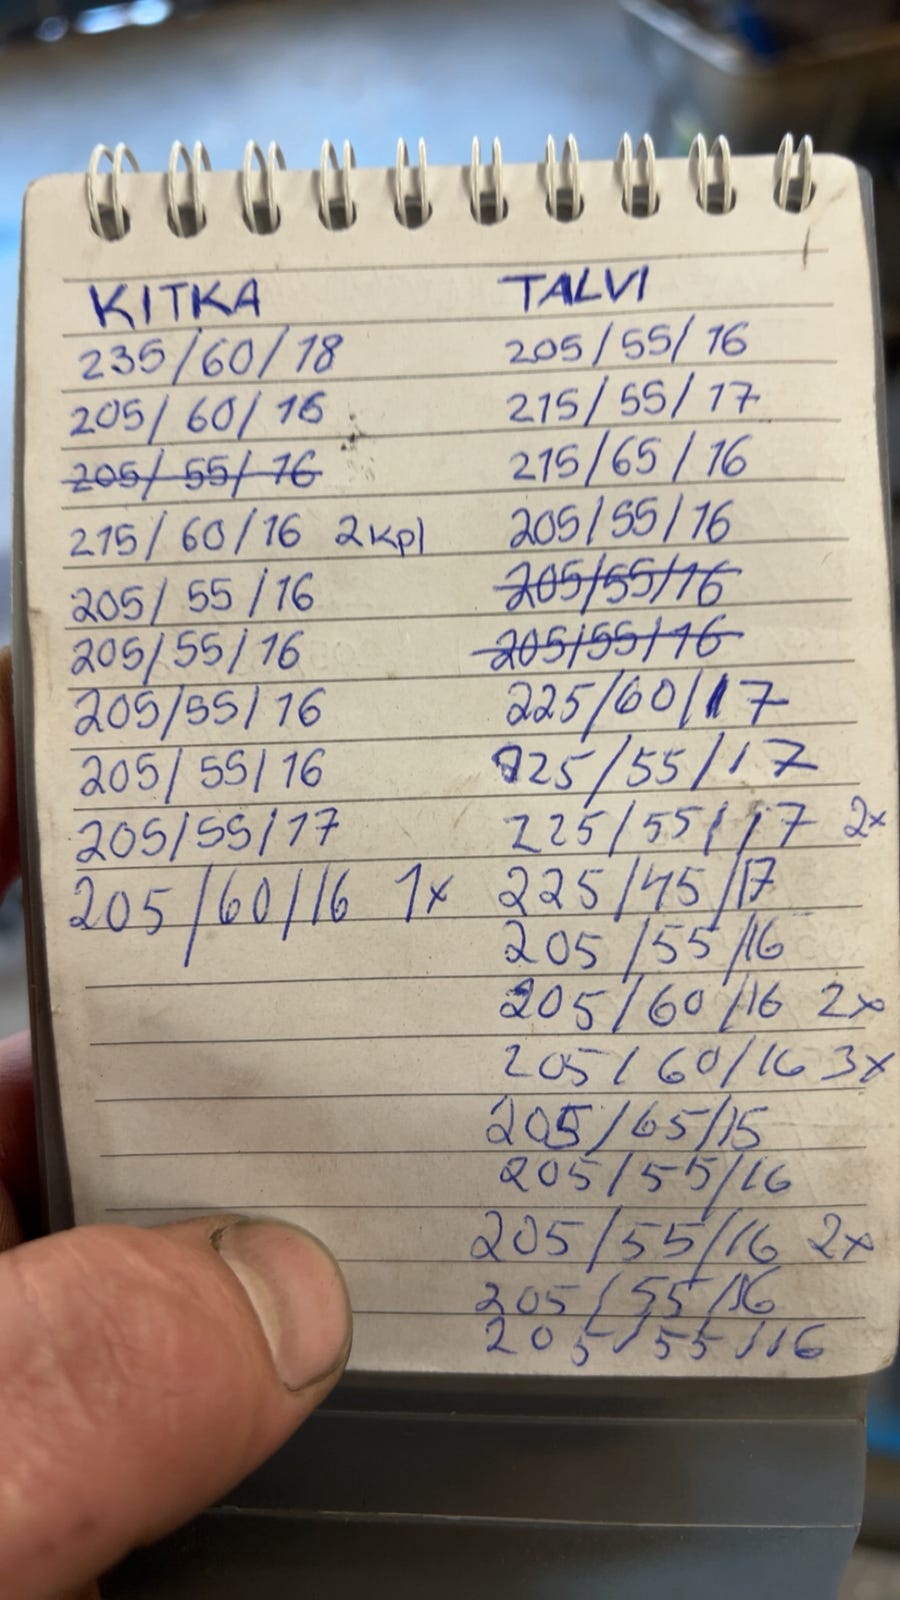 KITKA
235/60/18
205/60/16
205/55/16
215/60/16 2kpl
205/55/16
205/55/16
205/55/16
205/55/16
205/55/17
205/60/16 1x
TALVI
205/55/16
215/55/17
215/65/16
205/55/16
205/55/16
205/55/16
225/60/17
225/55/17
225/55/17 2x
225/45/17
205/55/16
205/60/16 2x
205/60/16 3x
205/65/15
205/55/16
205/55/16 2x
205/55/16
205/55/16